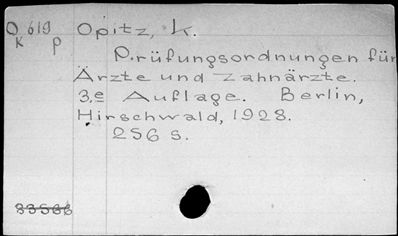 O 619 Opitz, K.
K P
Prüfungsordnungen für
Ärzte und Zahnärzte.
3.e Auflage. Berlin,
Hirschwald, 1928.
256 s.
33566